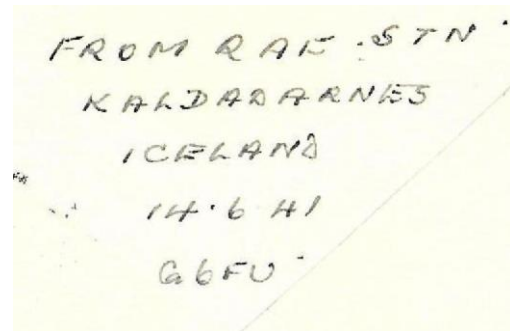 FROM RAF. STN.
KALDADARNES
ICELAND
14.6 41
G6FU.